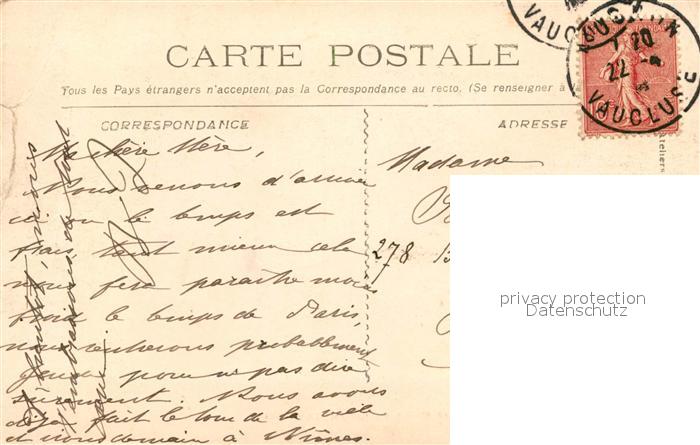 CARTE POSTALE
Tous les Pays étrangers n'acceptent pas la Correspondance au recto. (Se renseigner à
CORRESPONDANCE
ADRESSE
Ma chère Mère,
Nous venons d'arriver
ici ou le temps est
frais, tant mieux cela
nous fera paraître moins
froid le temps de Paris,
nous rentrerons probablement
Jeudi pour ne pas dire
sûrement. Nous avons
déjà fait le tour de la ville
et nous demain à Nîmes.
A bientôt,
Madame
278
VAUCLUSE
20
22
VAUCLUSE
Ateliers
privacy protection
Datenschutz